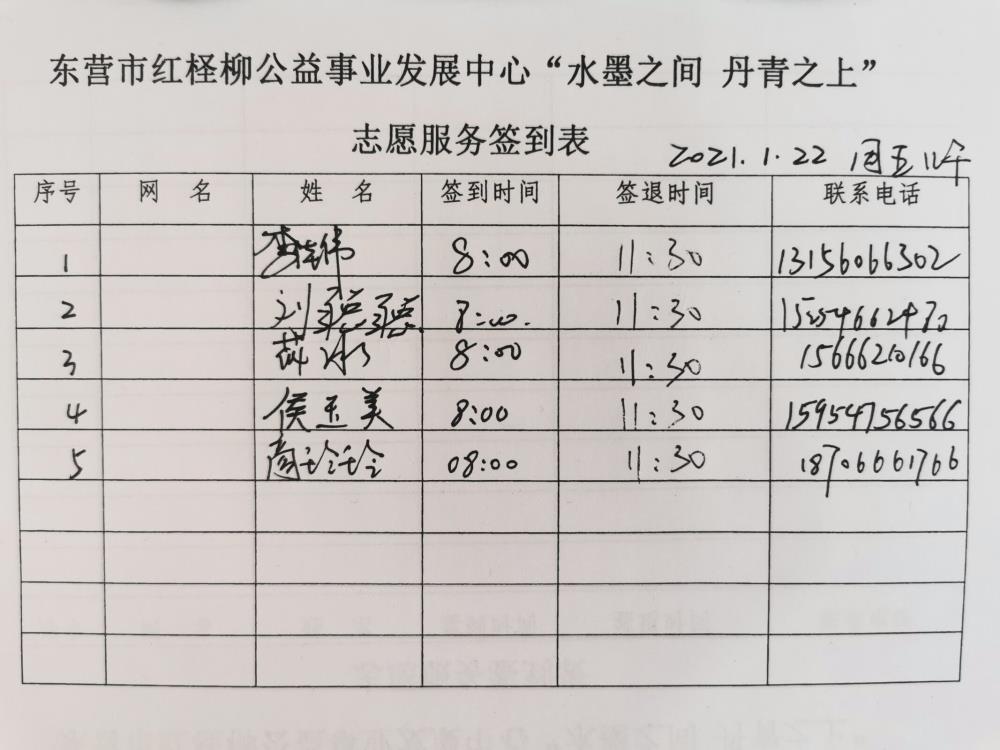 东营市红柽柳公益事业发展中心“水墨之间 丹青之上”
志愿服务签到表
2021.1.22 周五
序号 网 名 姓 名 签到时间 签退时间 联系电话
1 8:00 11:30 13156066302
2 刘 8:00. 11:30
3 薛冰 8:00 11:30 15666210166
4 侯玉美 8:00 11:30 15954756566
5 商玲玲 08:00 11:30 18706661766